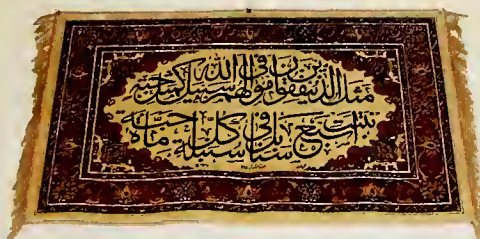 مثل الذين ينفقون اموالهم فى سبيل الله كمثل حبة
انبتت سبع سنابل فى كل سنبلة مائة حبة